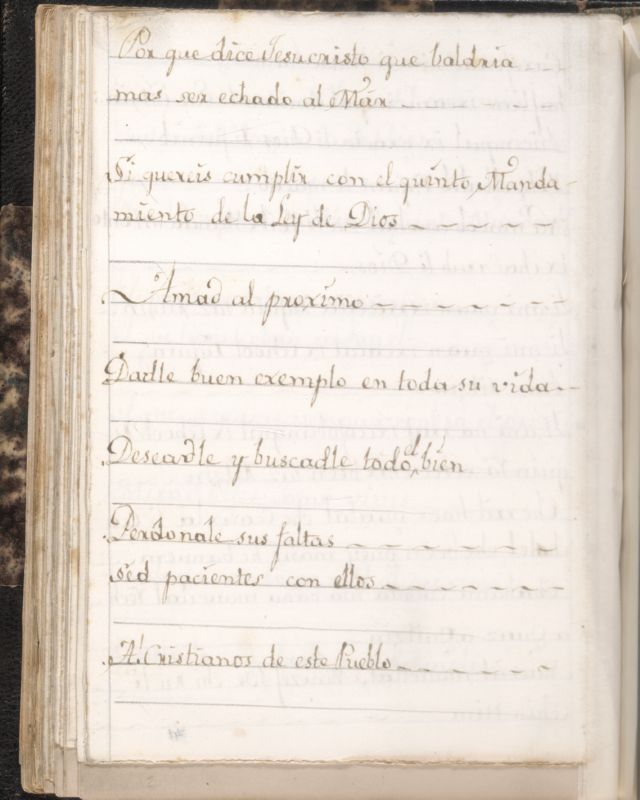 Por que dice Jesucristo que baldria
mas ser echado al Mar
Si quereis cumplir con el quinto Manda-
miento de la Ley de Dios
Amad al proximo
Dadle buen exemplo en toda su vida
Deseadle y buscadle todo el bien
Perdonale sus faltas
sed pacientes con ellos
A! Cristianos de este Pueblo